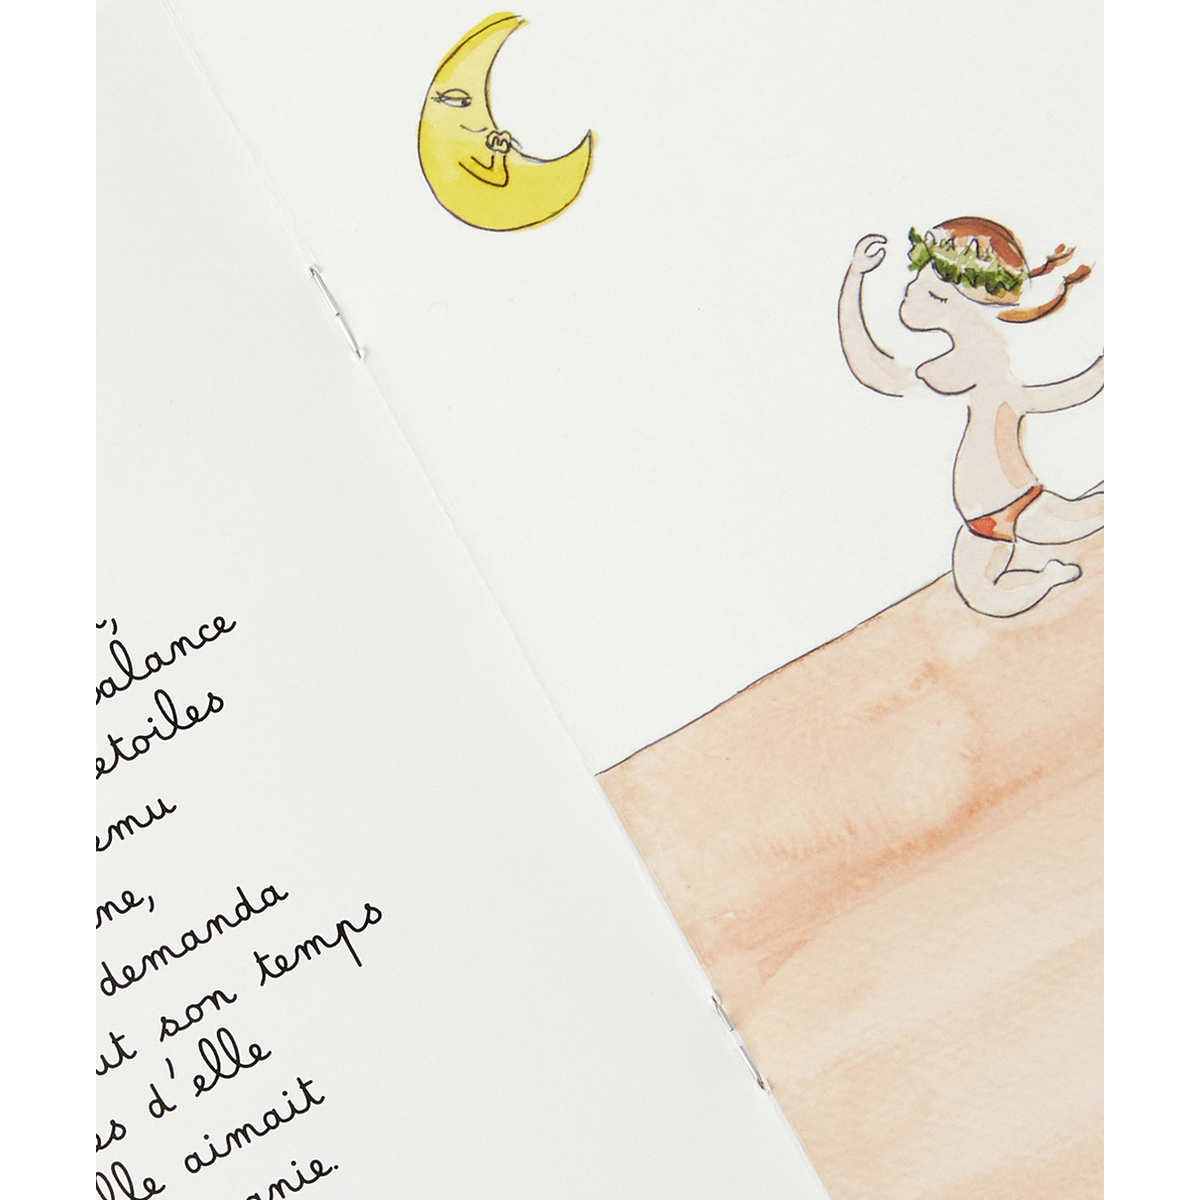 balance
étoiles
emu
ne,
demanda
ut son temps
es d'elle
lle aimait
anie.